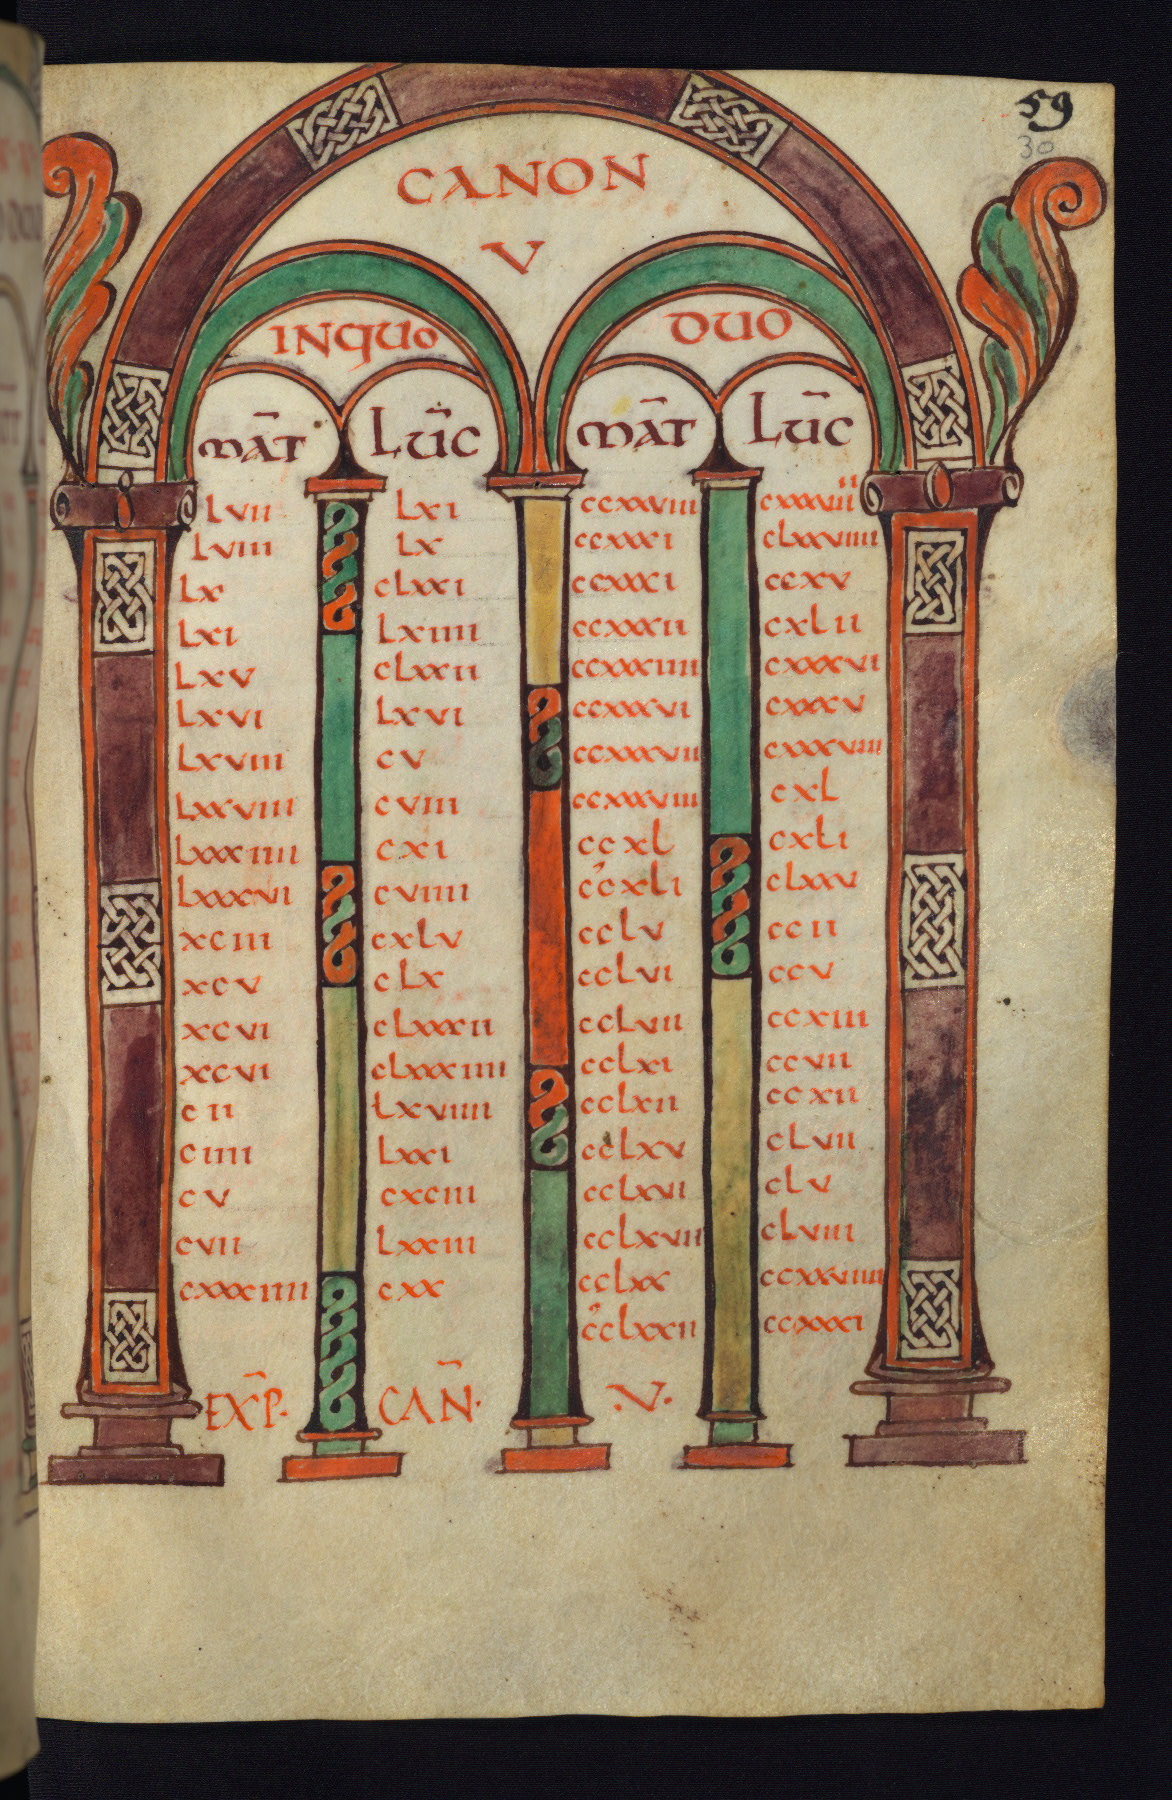 59
30
CANON
V
INQUO DUO
MAT̄ LUC̄ MAT̄ LUC̄
LVII LXI CCXXVIII CXXXVIIII
LVIII LX CCXXXI CLXXVIIII
LX CLXXI CCXXXI CCXV
LXI LXIIII CCXXXII CXLII
LXV CLXXII CCXXXIIII CXXXVI
LXVI LXVI CCXXXVI CXXXV
LXVIII CV CCXXXVII CXXXVIII
LXXVIII CVIII CCXXXVIII CXL
LXXXIIII CXI CCXL CXLI
LXXXVI CVIIII CCXLI CLXXV
XCIII CXLV CCLV CCII
XCV CLX CCLVI CCV
XCVI CLXXXII CCLVII CCXIII
XCVI CLXXXIIII CCLXI CCVII
CII LXVIIII CCLXII CCXII
CIIII LXXI CCLXV CLVII
CV CXCIII CCLXVII CLV
CVII LXXIII CCLXVII CLVIII
CXXXIIII CXX CCLXX CCXXVIIII
CCLXXII CCXXXI
EXP̄· CAN̄· V·